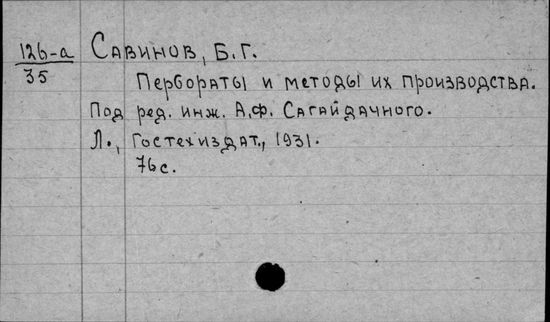 126-а
35
Савинов, Б.Г.
Пербораты и методы их производства.
Под ред. инж. А.Ф. Сагайдачного.
Л., Гостехиздат., 1931.
76с.